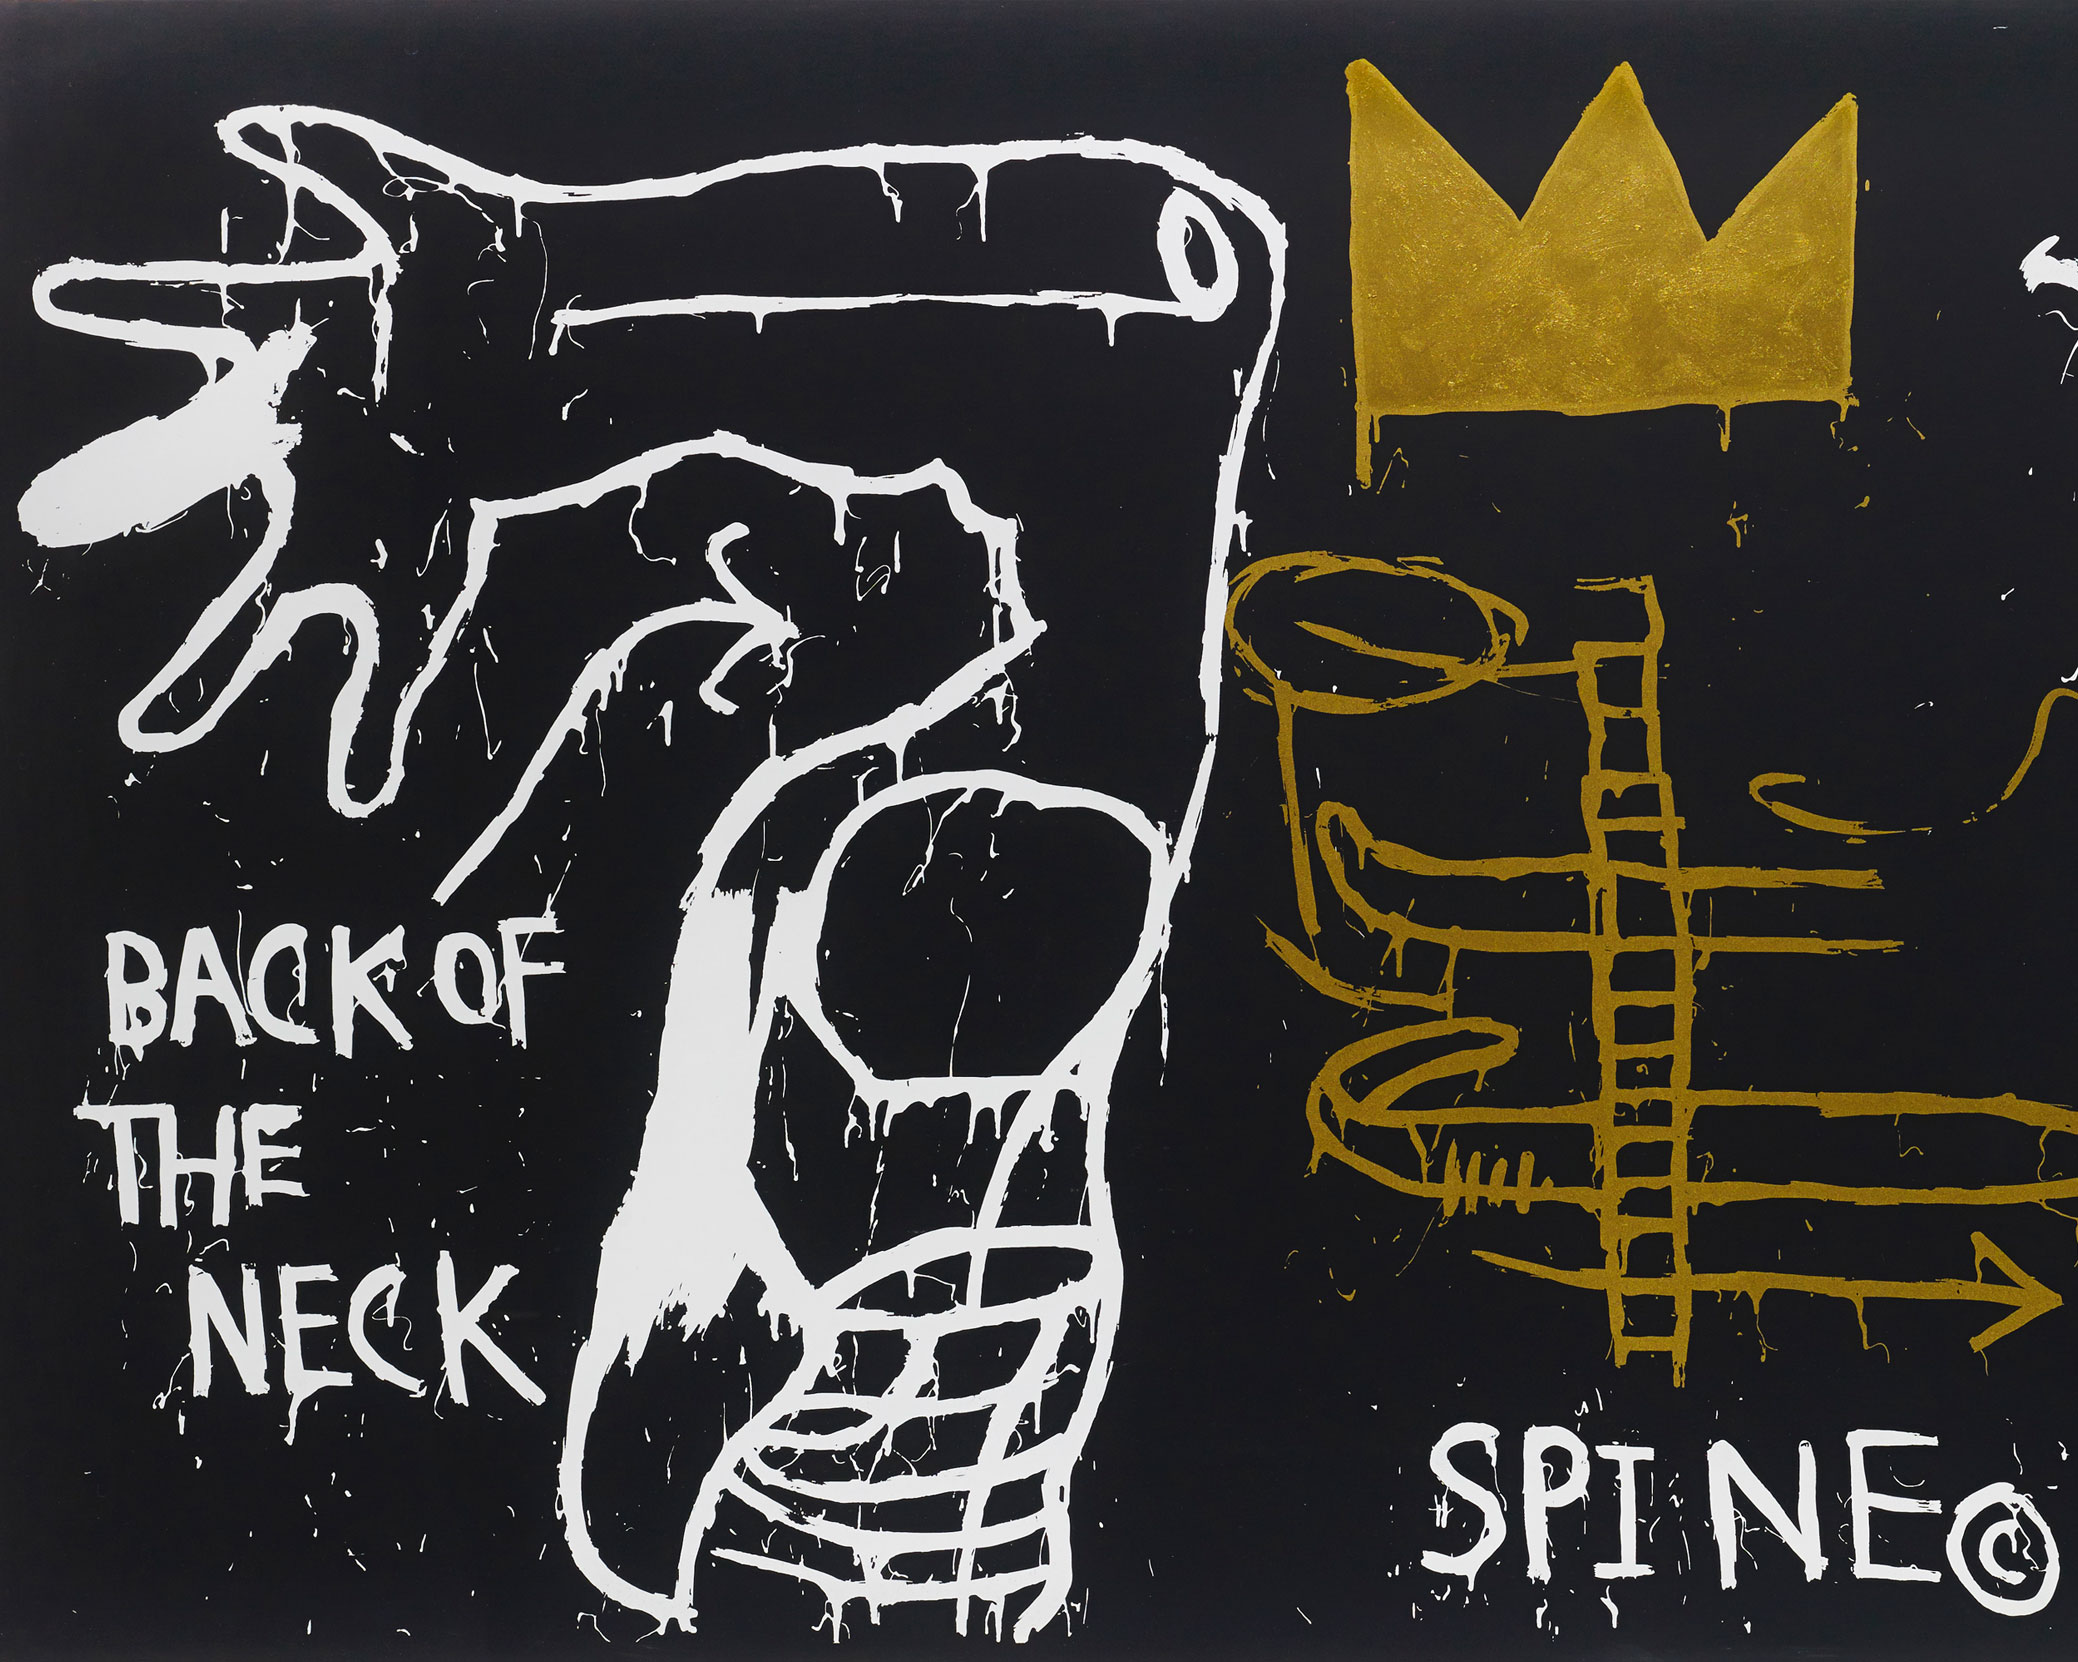 BACK OF
THE
NECK
SPINE©